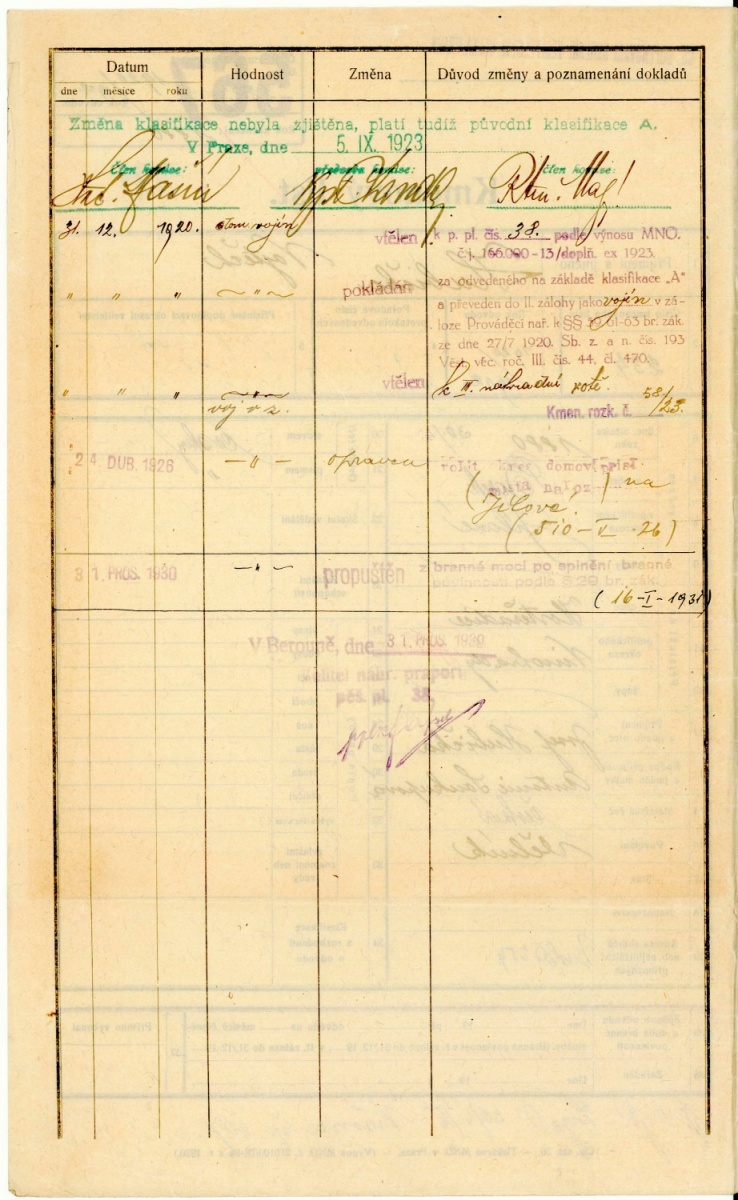 Datum Hodnost Změna Důvod změny a poznamenání dokladů
dne měsíce roku
Změna klasifikace nebyla zjištěna, platí tudíž původní klasifikace A.
V Praze, dne 5. IX. 1923
Člen komise: předseda komise: Člen komise:
31. 12. 1920. dom. vojín vtělen k p. pl. čís. 38. podle výnosu MNO.
č.j. 166.000-13/doplň. ex 1923.
" " " — " — pokládán za odvedeného na základě klasifikace „A"
a převeden do II. zálohy jako vojín v zá-
loze Prováděcí nař. k §§ 59, 61-63 br. zák.
ze dne 27/7 1920. Sb. z. a n. čís. 193
Věst. věc. roč. III. čís. 44, čl. 470.
" " " — " — vtělen k III. náhradní rotě.
voj. v z. Kmen. rozk. č. 58/23.
24. DUB. 1926 — " — oprava
domov. přísl.
( ) na
Jílové.
(510-V-26)
31. PROS. 1930 — " — propuštěn z branné moci po splnění branné
povinnosti podle § 20 br. zák.
(16-I-1931)
V Berouně, dne 31. PROS. 1930
Velitel náhr. praporu
pěš. pl. 38.